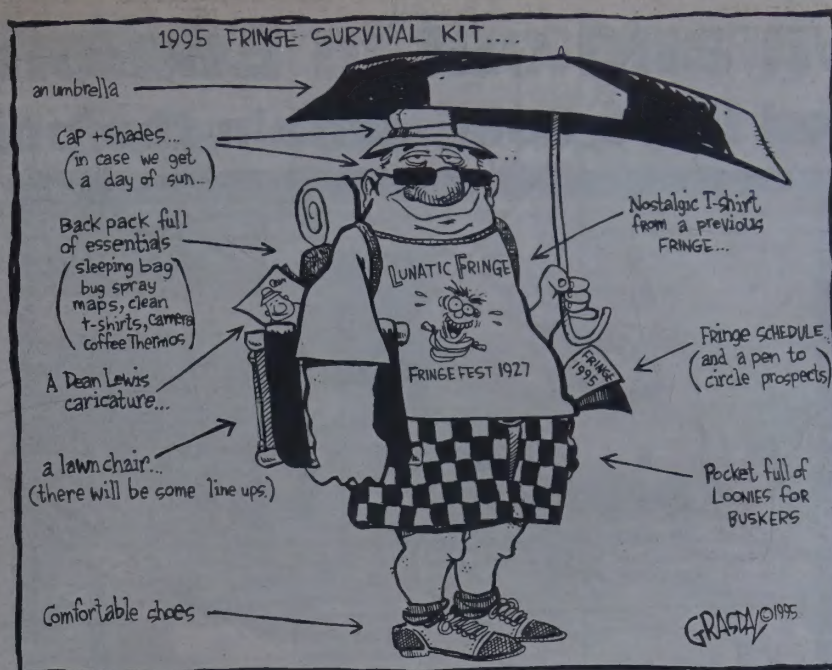 1995 FRINGE SURVIVAL KIT....
an umbrella
Cap + Shades...
(in case we get
a day of sun...)
Back pack full
of essentials
(sleeping bag
bug spray
maps, clean
t-shirts, camera
coffee Thermos)
A Dean Lewis
caricature...
a lawn chair...
(there will be some line ups.)
Comfortable shoes
LUNATIC FRINGE
FRINGE FEST 1927
Nostalgic T-shirt
from a previous
FRINGE...
FRINGE
1995
Fringe SCHEDULE
(and a pen to
circle prospects)
Pocket full of
LOONIES FOR
BUSKERS
GRASDAL ©1995